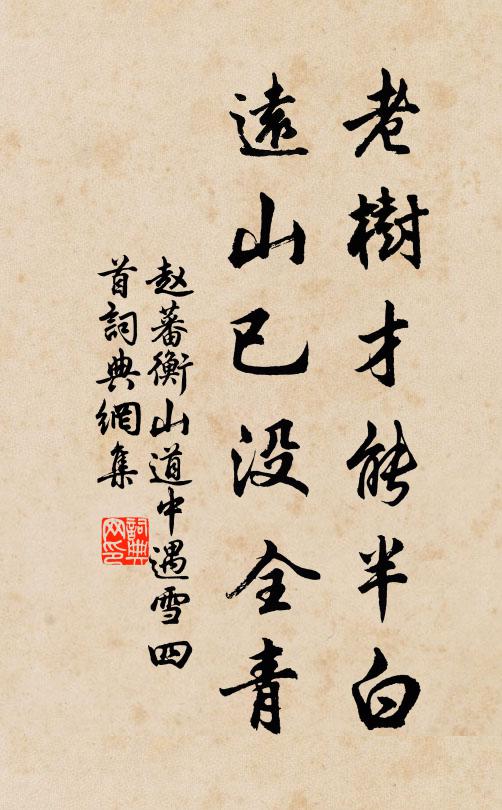 老樹才能半白
遠山已没全青
赵蕃衡山道中遇雪四
首詞典網集
詞典网印